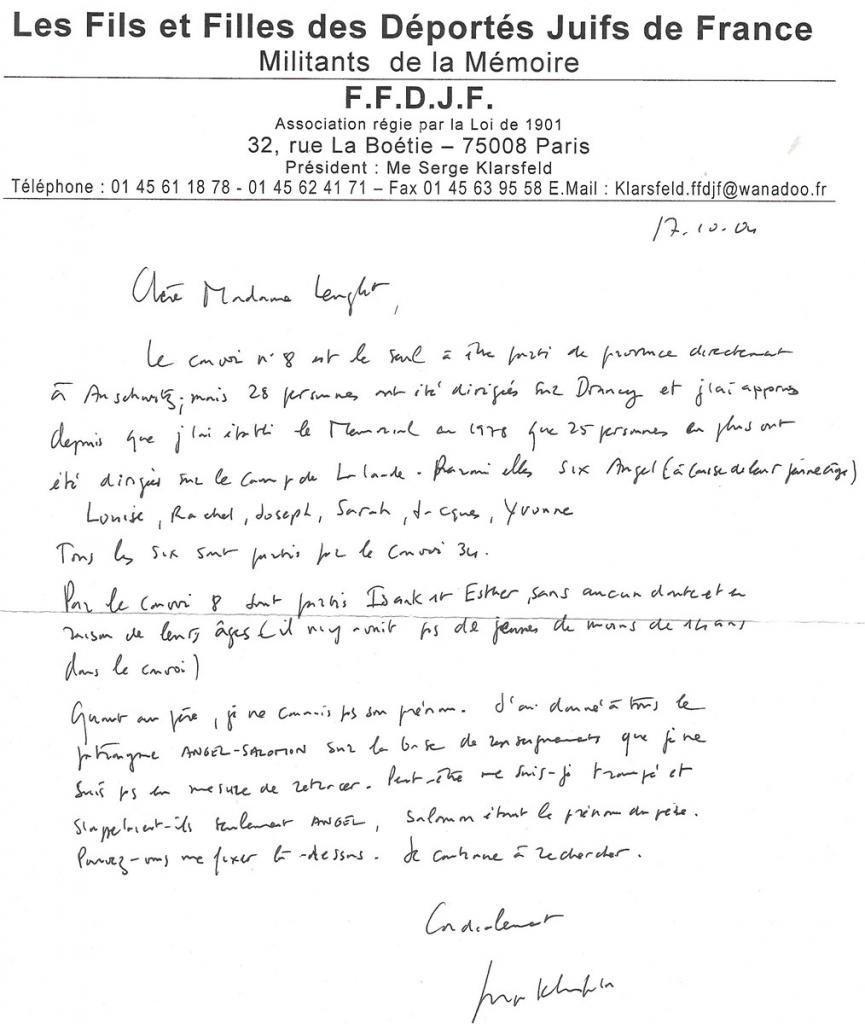 Les Fils et Filles des Déportés Juifs de France
Militants de la Mémoire
F.F.D.J.F.
Association régie par la Loi de 1901
32, rue La Boétie – 75008 Paris
Président : Me Serge Klarsfeld
Téléphone : 01 45 61 18 78 - 01 45 62 41 71 – Fax 01 45 63 95 58 E.Mail : Klarsfeld.ffdjf@wanadoo.fr
17.10.04
Chère Madame
Le convoi n° 8 est le seul à être parti de province directement
à Auschwitz; mais 28 personnes ont été dirigées sur Drancy et j'ai appris
depuis que j'ai établi le Mémorial en 1978 que 25 personnes en plus ont
été dirigées sur le camp de Lalande. Parmi elles six Angel (à cause de leur jeune âge)
Louise, Rachel, Joseph, Sarah, Jacques, Yvonne
Tous les six sont partis par le convoi 34.
Par le convoi 8 sont partis Isaak et Esther, sans aucun doute et en
raison de leurs âges (il n'y avait pas de jeunes de moins de ans
dans le convoi)
Quant au père, je ne connais pas son prénom. J'ai donné à tous le
patronyme ANGEL-SALOMON sur la base de renseignements que je ne
suis pas en mesure de retracer. Peut-être me suis-je trompé et
s'appelaient-ils seulement ANGEL, Salomon étant le prénom du père.
Pouvez-vous me fixer là-dessus. Je continue à rechercher.
Cordialement
Serge Klarsfeld